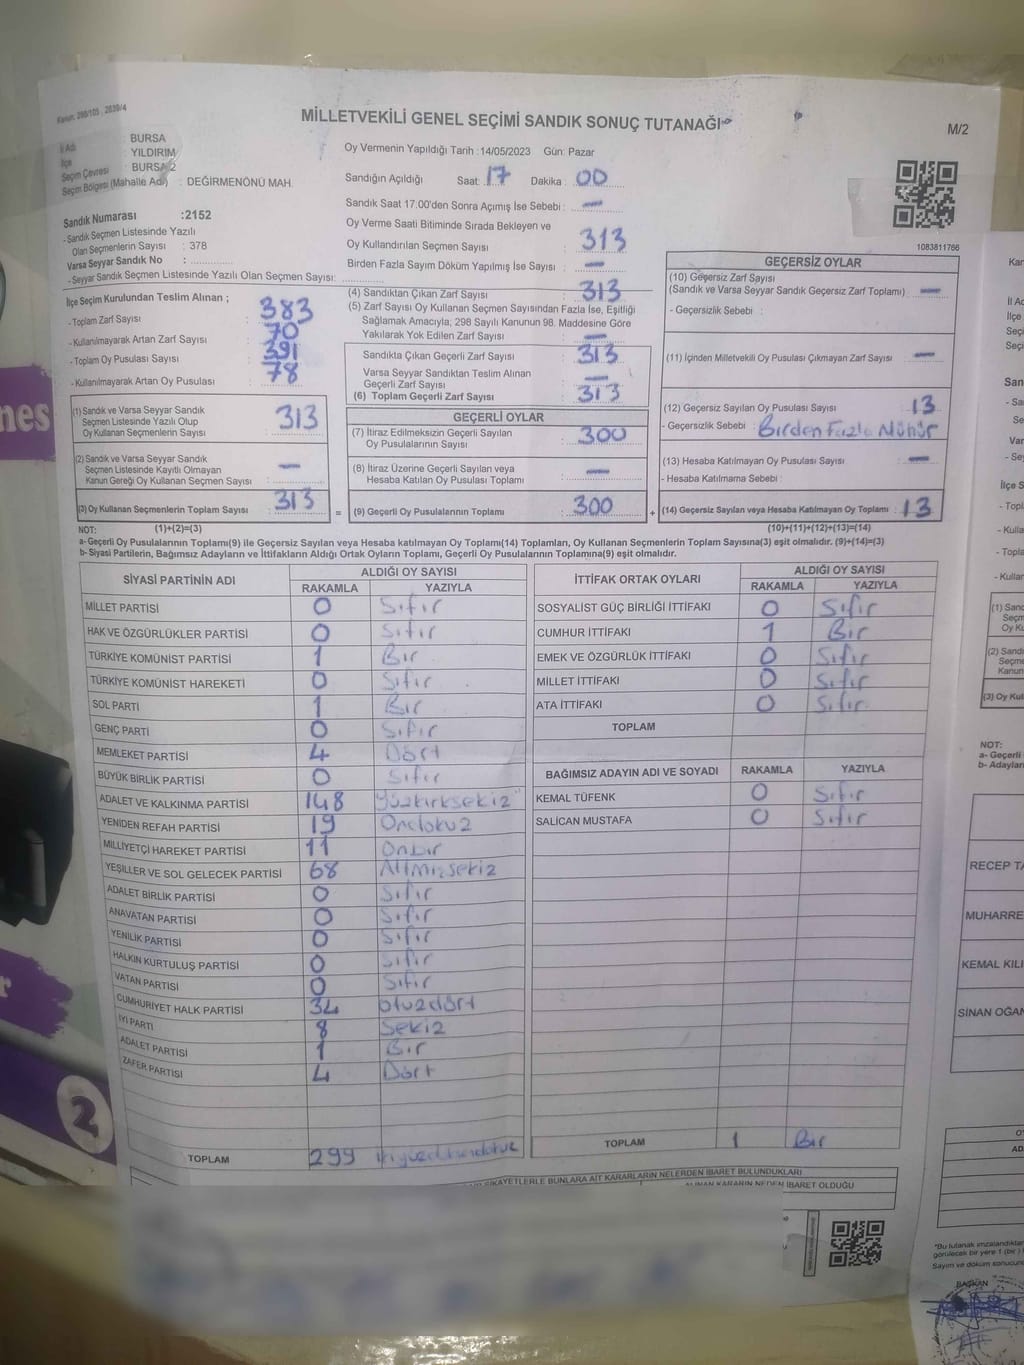 Kanun: 298/105 , 2839/4
MİLLETVEKİLİ GENEL SEÇİMİ SANDIK SONUÇ TUTANAĞI
M/2
İl Adı BURSA
İlçe YILDIRIM
Seçim Çevresi : BURSA 2
Seçim Bölgesi (Mahalle Adı) : DEĞİRMENÖNÜ MAH.
Oy Vermenin Yapıldığı Tarih :14/05/2023 Gün: Pazar
Sandığın Açıldığı Saat: 17 Dakika : 00
Sandık Saat 17:00'den Sonra Açımış İse Sebebi : -
Oy Verme Saati Bitiminde Sırada Bekleyen ve
Oy Kullandırılan Seçmen Sayısı : 313
Birden Fazla Sayım Döküm Yapılmış İse Sayısı : -
Sandık Numarası :2152
- Sandık Seçmen Listesinde Yazılı
Olan Seçmenlerin Sayısı : 378
Varsa Seyyar Sandık No :
- Seyyar Sandık Seçmen Listesinde Yazılı Olan Seçmen Sayısı:
1083811766
İlçe Seçim Kurulundan Teslim Alınan ;
- Toplam Zarf Sayısı : 383
- Kullanılmayarak Artan Zarf Sayısı : 70
- Toplam Oy Pusulası Sayısı : 391
- Kullanılmayarak Artan Oy Pusulası : 78
(1) Sandık ve Varsa Seyyar Sandık
Seçmen Listesinde Yazılı Olup
Oy Kullanan Seçmenlerin Sayısı : 313
(2) Sandık ve Varsa Seyyar Sandık
Seçmen Listesinde Kayıtlı Olmayan
Kanun Gereği Oy Kullanan Seçmen Sayısı : -
(3) Oy Kullanan Seçmenlerin Toplam Sayısı : 313
(4) Sandıktan Çıkan Zarf Sayısı : 313
(5) Zarf Sayısı Oy Kullanan Seçmen Sayısından Fazla İse, Eşitliği
Sağlamak Amacıyla; 298 Sayılı Kanunun 98. Maddesine Göre
Yakılarak Yok Edilen Zarf Sayısı : -
Sandıkta Çıkan Geçerli Zarf Sayısı : 313
Varsa Seyyar Sandıktan Teslim Alınan
Geçerli Zarf Sayısı : -
(6) Toplam Geçerli Zarf Sayısı : 313
GEÇERLİ OYLAR
(7) İtiraz Edilmeksizin Geçerli Sayılan
Oy Pusulalarının Sayısı : 300
(8) İtiraz Üzerine Geçerli Sayılan veya
Hesaba Katılan Oy Pusulası Toplamı : -
= (9) Geçerli Oy Pusulalarının Toplamı : 300
GEÇERSİZ OYLAR
(10) Geçersiz Zarf Sayısı
(Sandık ve Varsa Seyyar Sandık Geçersiz Zarf Toplamı) : -
- Geçersizlik Sebebi :
(11) İçinden Milletvekili Oy Pusulası Çıkmayan Zarf Sayısı : -
(12) Geçersiz Sayılan Oy Pusulası Sayısı : 13
- Geçersizlik Sebebi : Birden Fazla Mühür
(13) Hesaba Katılmayan Oy Pusulası Sayısı : -
- Hesaba Katılmama Sebebi :
+ (14) Geçersiz Sayılan veya Hesaba Katılmayan Oy Toplamı : 13
NOT: (1)+(2)=(3) (10)+(11)+(12)+(13)=(14)
a- Geçerli Oy Pusulalarının Toplamı(9) ile Geçersiz Sayılan veya Hesaba katılmayan Oy Toplamı(14) Toplamları, Oy Kullanan Seçmenlerin Toplam Sayısına(3) eşit olmalıdır. (9)+(14)=(3)
b- Siyasi Partilerin, Bağımsız Adayların ve İttifakların Aldığı Ortak Oyların Toplamı, Geçerli Oy Pusulalarının Toplamına(9) eşit olmalıdır.
SİYASİ PARTİNİN ADI ALDIĞI OY SAYISI
RAKAMLA YAZIYLA
MİLLET PARTİSİ 0 Sıfır
HAK VE ÖZGÜRLÜKLER PARTİSİ 0 Sıfır
TÜRKİYE KOMÜNİST PARTİSİ 1 Bir
TÜRKİYE KOMÜNİST HAREKETİ 0 Sıfır
SOL PARTİ 1 Bir
GENÇ PARTİ 0 Sıfır
MEMLEKET PARTİSİ 4 Dört
BÜYÜK BİRLİK PARTİSİ 0 Sıfır
ADALET VE KALKINMA PARTİSİ 148 Yüzkırksekiz
YENİDEN REFAH PARTİSİ 19 Ondokuz
MİLLİYETÇİ HAREKET PARTİSİ 11 Onbir
YEŞİLLER VE SOL GELECEK PARTİSİ 68 Altmışsekiz
ADALET BİRLİK PARTİSİ 0 Sıfır
ANAVATAN PARTİSİ 0 Sıfır
YENİLİK PARTİSİ 0 Sıfır
HALKIN KURTULUŞ PARTİSİ 0 Sıfır
VATAN PARTİSİ 0 Sıfır
CUMHURİYET HALK PARTİSİ 34 otuzdört
İYİ PARTİ 8 Sekiz
ADALET PARTİSİ 1 Bir
ZAFER PARTİSİ 4 Dört
TOPLAM 299
İTTİFAK ORTAK OYLARI ALDIĞI OY SAYISI
RAKAMLA YAZIYLA
SOSYALİST GÜÇ BİRLİĞİ İTTİFAKI 0 Sıfır
CUMHUR İTTİFAKI 1 Bir
EMEK VE ÖZGÜRLÜK İTTİFAKI 0 Sıfır
MİLLET İTTİFAKI 0 Sıfır
ATA İTTİFAKI 0 Sıfır
TOPLAM
BAĞIMSIZ ADAYIN ADI VE SOYADI RAKAMLA YAZIYLA
KEMAL TÜFENK 0 Sıfır
SALİCAN MUSTAFA 0 Sıfır
TOPLAM 1 Bir
ŞİKAYETLERLE BUNLARA AİT KARARLARIN NELERDEN İBARET BULUNDUKLARI
ALINAN KARARIN NEDEN İBARET OLDUĞU
nes
2
İl
İlçe
NOT:
a- Geçerli
b- Adayların
RECEP
MUHARRE
KEMAL KILI
SİNAN OĞAN
Sayım ve döküm
BAŞKAN